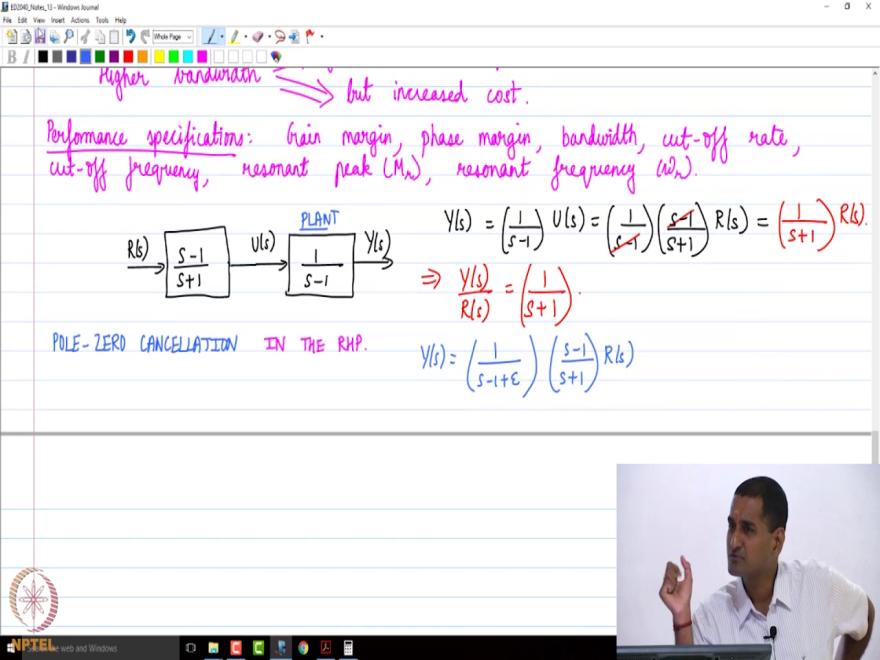 ED2040_Notes_13 - Windows Journal
File Edit View Insert Actions Tools Help
Whole Page
B I
Higher bandwidth
but increased cost.
Performance specifications: Gain margin, phase margin, bandwidth, cut-off rate,
cut-off frequency, resonant peak (Mr), resonant frequency (ωr).
PLANT
R(s) (s-1)/(s+1) U(s) 1/(s-1) Y(s)
Y(s) = (1/(s-1)) U(s) = (1/(s-1)) ((s-1)/(s+1)) R(s) = (1/(s+1)) R(s).
⇒ Y(s)/R(s) = (1/(s+1)).
POLE-ZERO CANCELLATION IN THE RHP.
Y(s) = (1/(s-1+ε)) ((s-1)/(s+1)) R(s)
NPTEL
the web and Windows